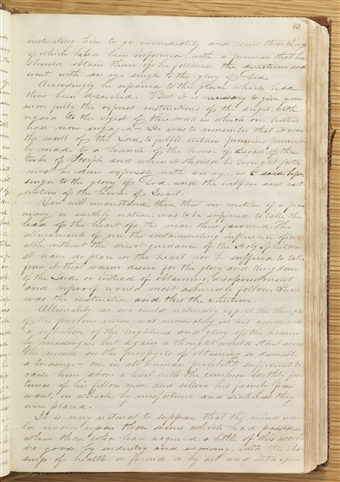 83
instructing him to go immediately and view those things
of which he had been informed, with a promise that he
should obtain them if he followed the directions and
went with an eye single to the glory of God.
Accordingly he repaired to the place which had
thus been described. But it is necessary to give you
more fully the express instructions of the angel, with
regard to the object of this work in which our brother
had now engaged— He was to remember that it was
the work of the Lord, to fulfil certain promises previously
made to a branch of the house of Israel, of the
tribe of Joseph, and when it should be brought forth
must be done expressly with an eye, as I said before,
single to the glory of God, and the welfare and rest-
oration of the house of Israel.
You will understand, then, that no motive of a pecu-
niary, or earthly nature, was to be suffered to take the
lead of the heart of the man thus favored. The
allurements of vice, the contaminating influence of
wealth, without the direct guidance of the Holy Spirit, must
have no place in the heart nor be suffered to take
from it that warm desire for the glory and kingdom
of the Lord, or instead of obtaining, disappointment
and reproof would most assuredly follow. Such
was the instruction and this the caution.
Alternately, as we could naturally expect, the thought
of the previous vision was ruminating in his mind, with
a reflection of the brightness and glory of the heaven-
ly messenger; but again a thought would start across
the mind on the prospects of obtaining so desirable
a treasure— one in all human probability sufficient to
raise him above a level with the common earthly for-
tunes of his fellow men, and relieve his family from
want, in which, by misfortune and sickness they
were placed.
It is very natural to suppose that the mind would
revolve upon those scenes which had passed,
when those who had acquired a little of this world's
goods, by industry and economy, with the bles-
sings of health or friends, or by art and intrigue